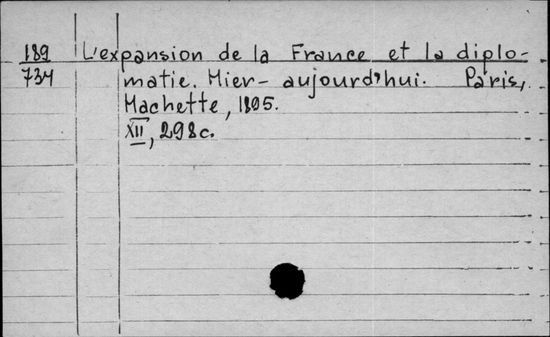 189 L'expansion de la France et la diplo-
734 matie. Hier - aujourd'hui. Paris,
Hachette, 1895.
XII, 298c.